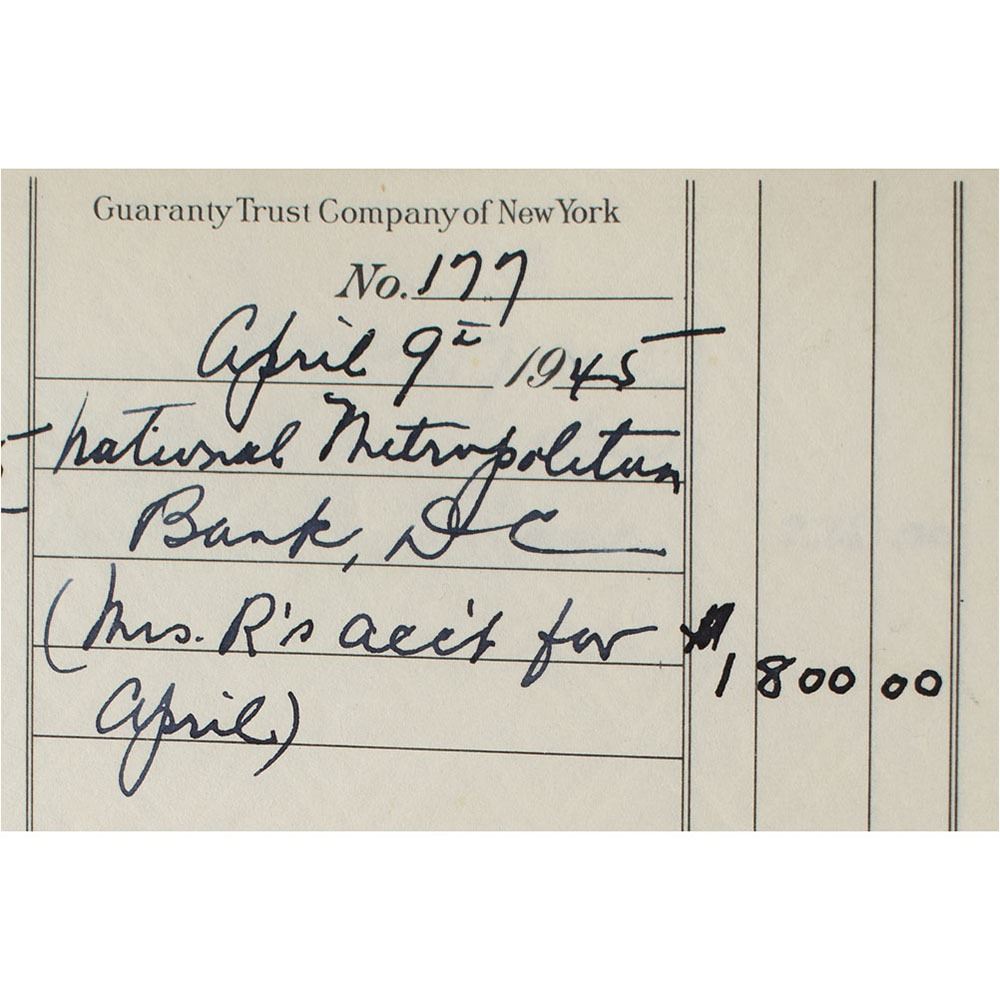 Guaranty Trust Company of New York
No. 177
April 9th 1945
National Metropolitan
Bank, DC
(Mrs. R's acc't for
April)
$1 800 00